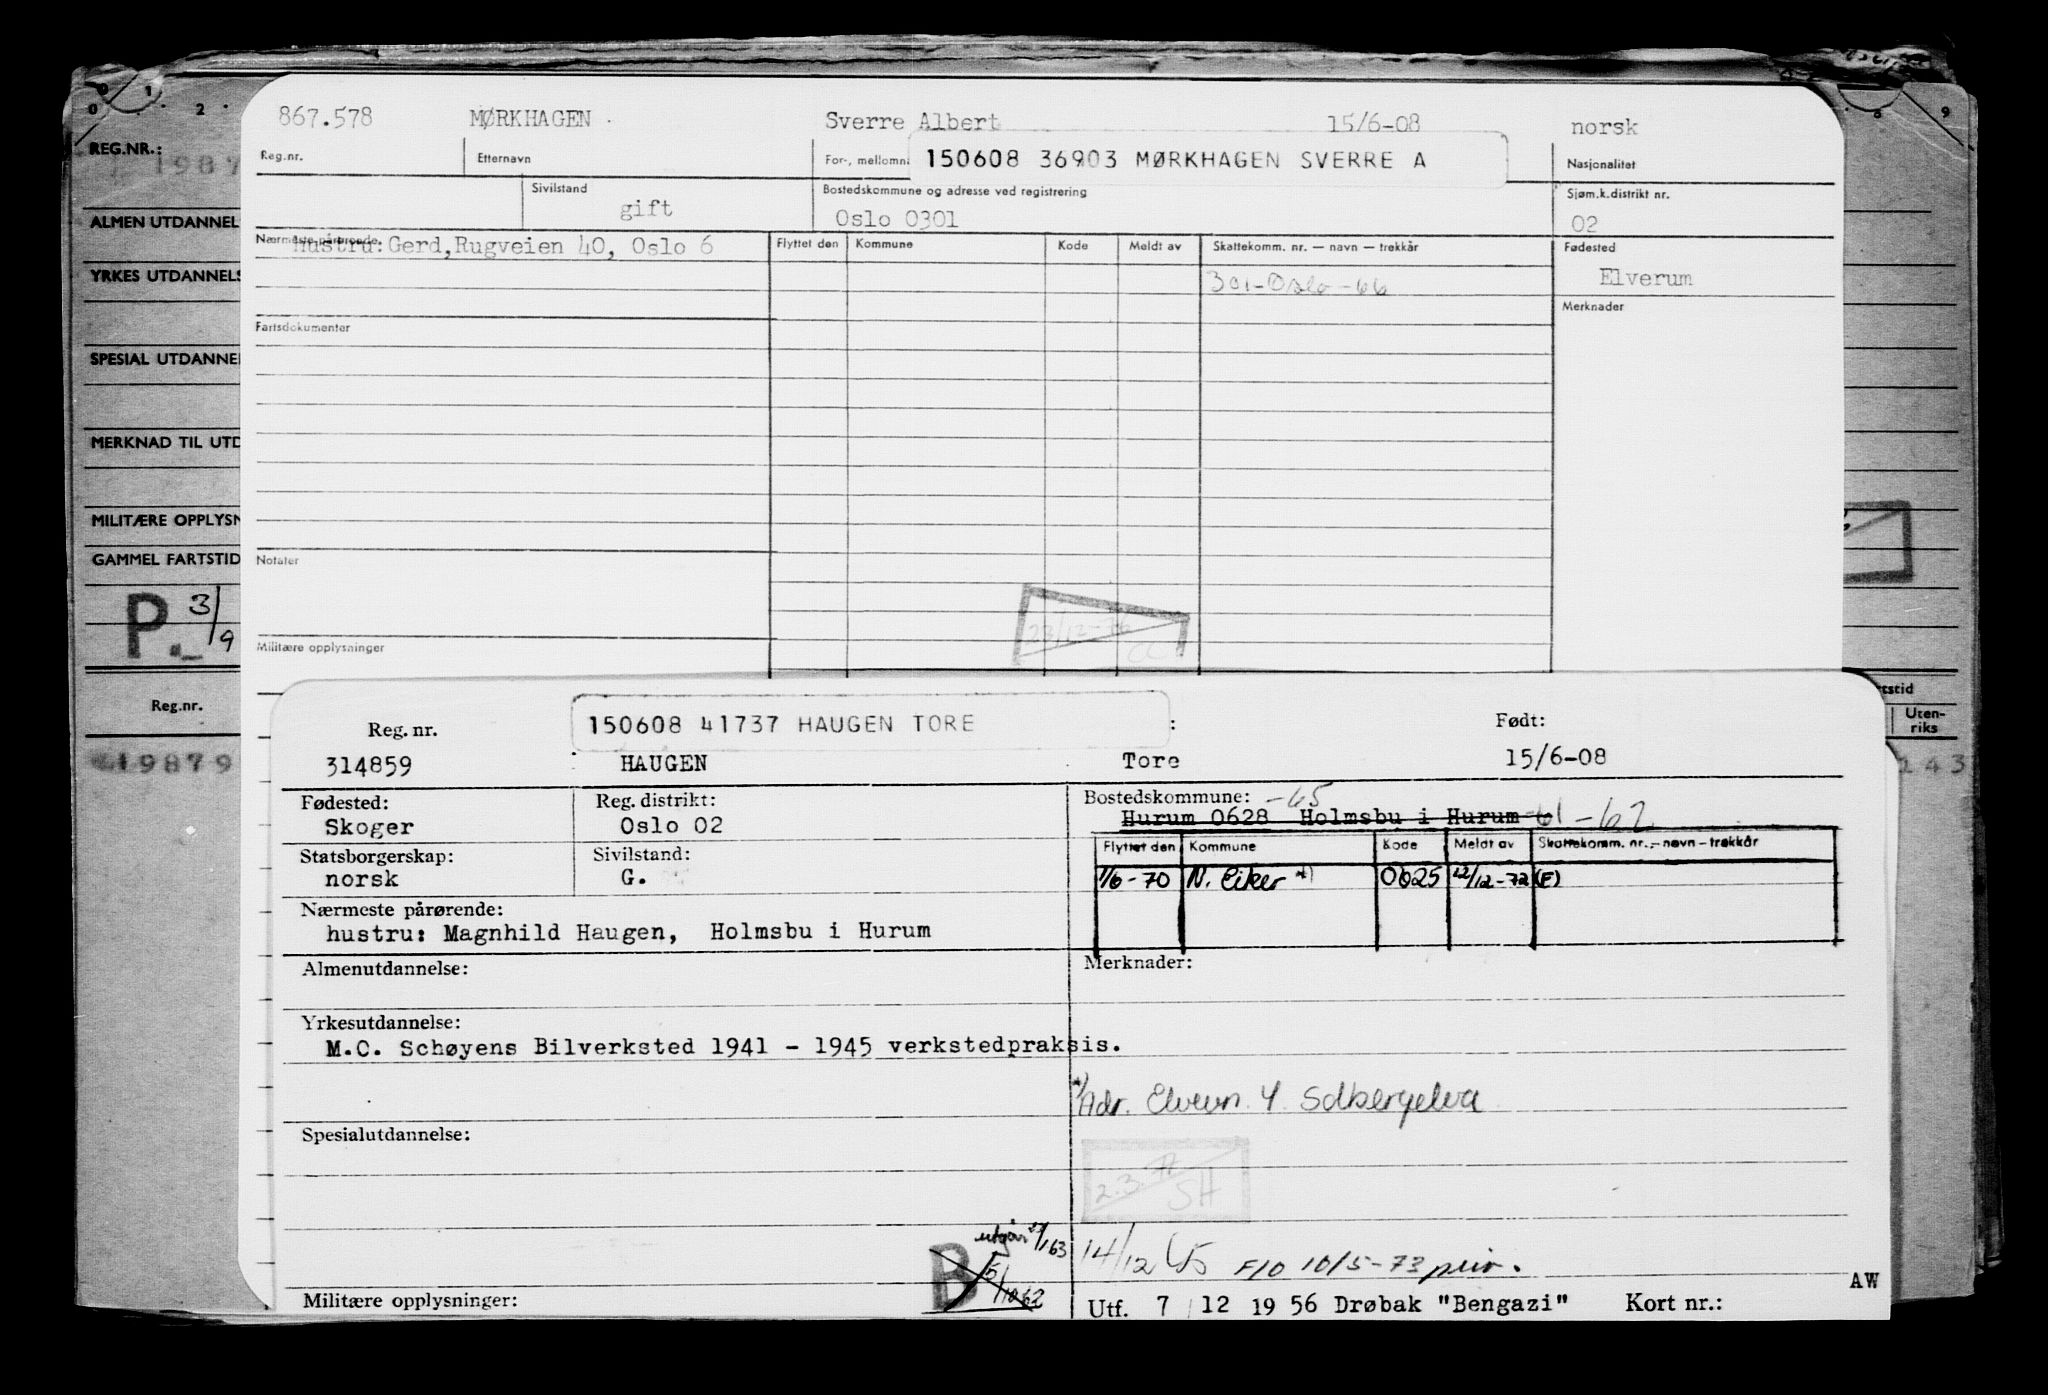 0 1 2 8 9
REG.NR.:
1987
ALMEN UTDANNEL
YRKES UTDANNELS
SPESIAL UTDANNE
MERKNAD TIL UTD
MILITÆRE OPPLYSN
GAMMEL FARTSTID
P. 3/9
Reg.nr.
19879
tstid
Uten-
riks
143
867.578 MØRKHAGEN Sverre Albert 15/6-08 norsk
Reg.nr. Etternavn For-, mellomn 150608 36903 MØRKHAGEN SVERRE A Nasjonalitet
Sivilstand Bostedskommune og adresse ved registrering Sjøm.k.distrikt nr.
gift Oslo 0301 02
Nærmeste pårørende Flyttet den Kommune Kode Meldt av Skattekomm. nr. — navn — trekkår Fødested
Hustru: Gerd, Rugveien 40, Oslo 6
301-Oslo-66 Elverum
Merknader
Fartsdokumenter
Notater
23/12-76
Militære opplysninger
150608 41737 HAUGEN TORE :
Reg. nr. Født:
314859 HAUGEN Tore 15/6-08
Fødested: Reg. distrikt: Bostedskommune: -65
Skoger Oslo 02 Hurum 0628 Holmsbu i Hurum -61 -62
Statsborgerskap: Sivilstand: Flyttet den Kommune Kode Meldt av Skattekomm. nr. – navn – trekkår
norsk G. 1/6-70 N. Eiker *) 0625 22/12-72 (F)
Nærmeste pårørende:
hustru: Magnhild Haugen, Holmsbu i Hurum
Almenutdannelse: Merknader:
Yrkesutdannelse:
M.C. Schøyens Bilverksted 1941 - 1945 verkstedpraksis.
*) Adr. Elvevn. 4. Solbergelva
Spesialutdannelse:
2.3.77
SH
utgår
B 5/10 62
14/12 65 F/O 10/5-73 priv.
AW
Militære opplysninger: Utf. 7 / 12 19 56 Drøbak "Bengazi" Kort nr.: